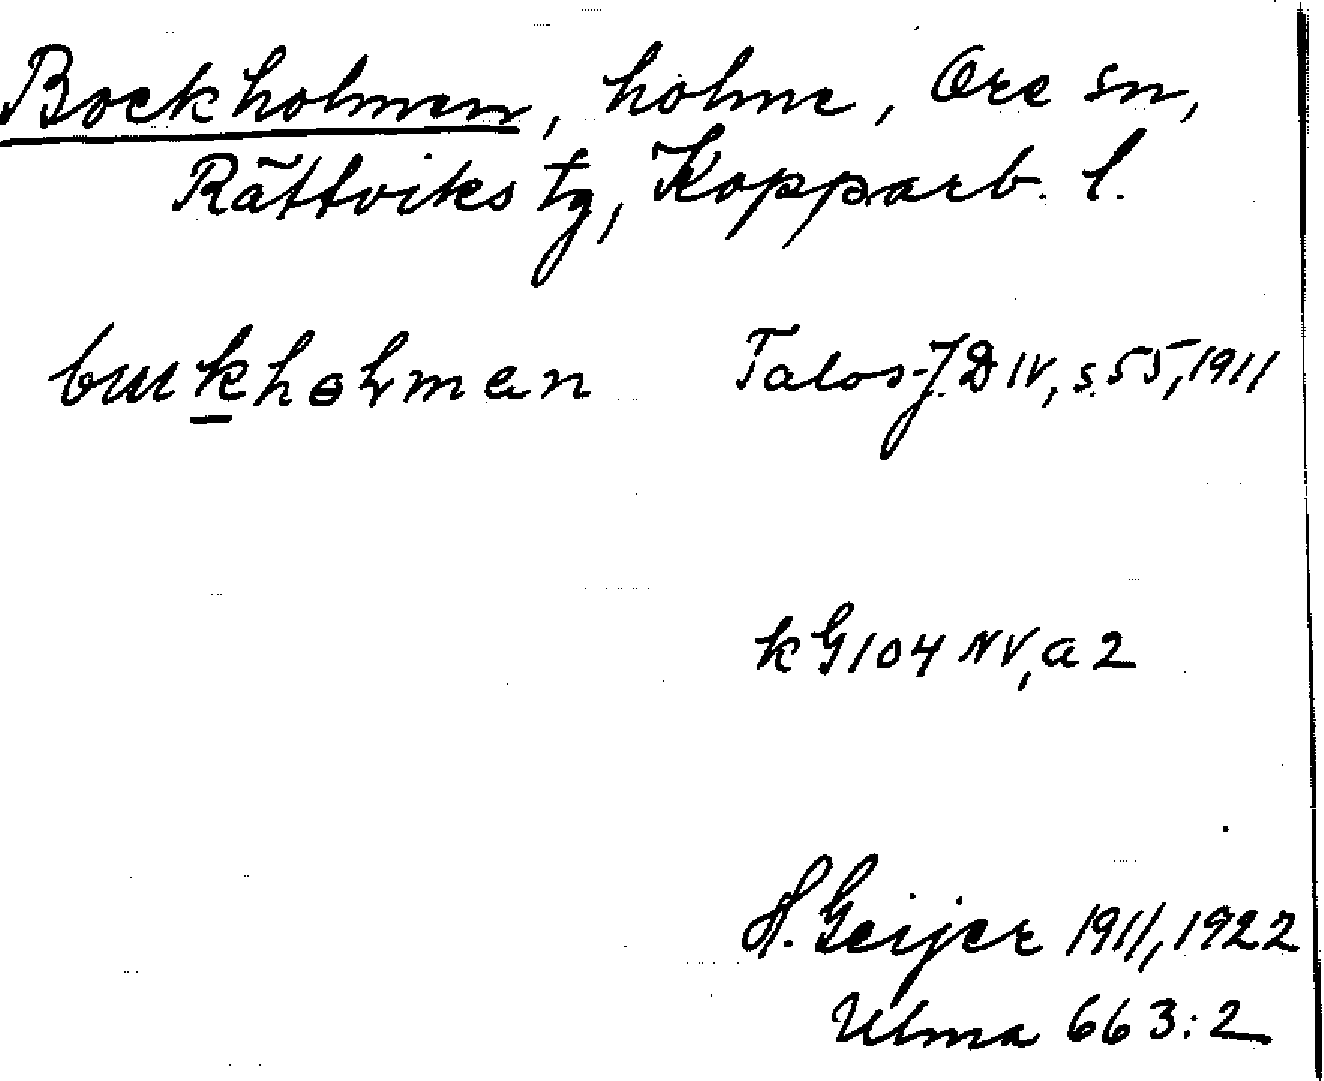 Bockholmen, holme, Ore sn,
Rättviks tg, Kopparb. l.
Talos-J. D IV, s. 55, 1911
k G 104 NV, a 2
H. Geijer 1911, 1922
Ulma 663:2